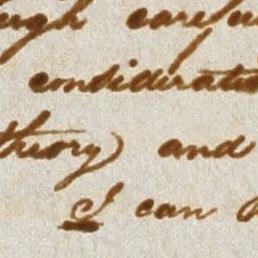 careful
consideratio
theory) and
I can